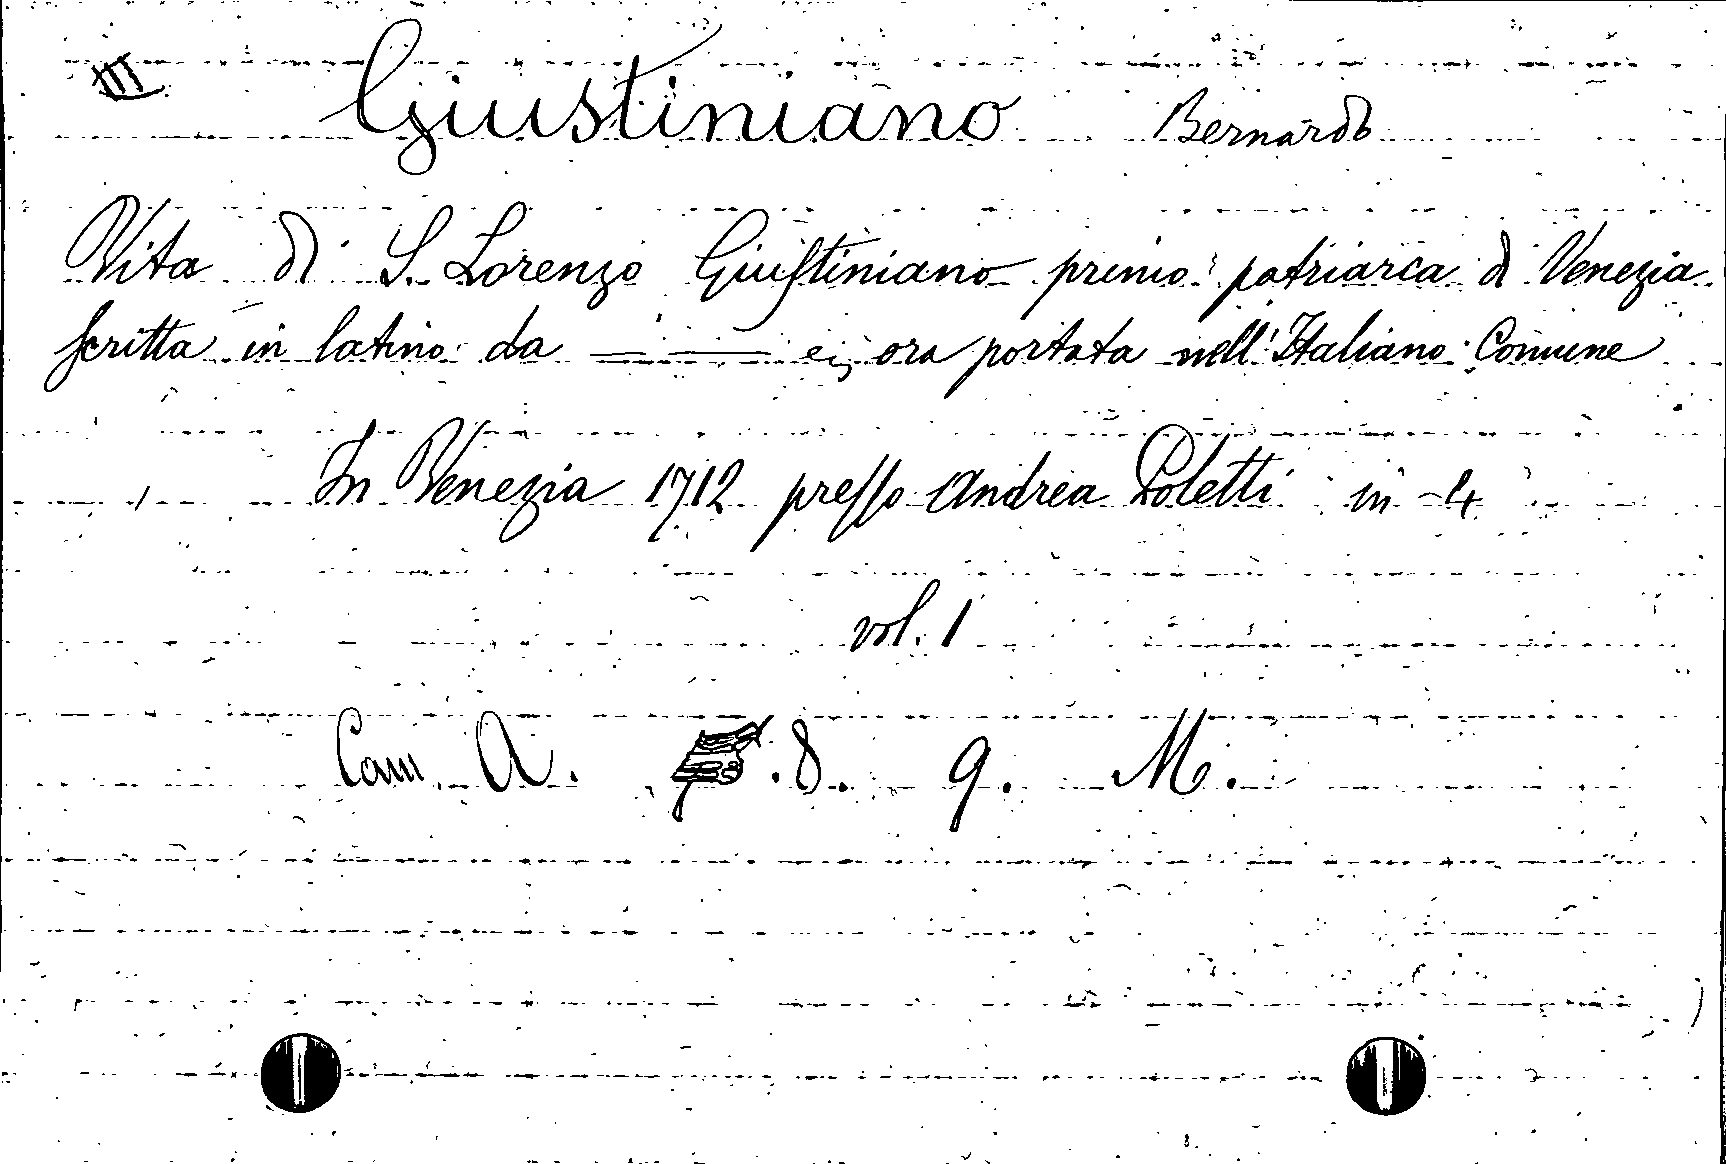 III Giustiniano Bernardo
Vita di S. Lorenzo Giuſtiniano primo patriarca di Venezia
ſcritta in latino da — — e, ora portata nell'Italiano Comune
In Venezia 1712 preſſo Andrea Poletti in-4
vol. 1
Cam. A. .8. 9. M.